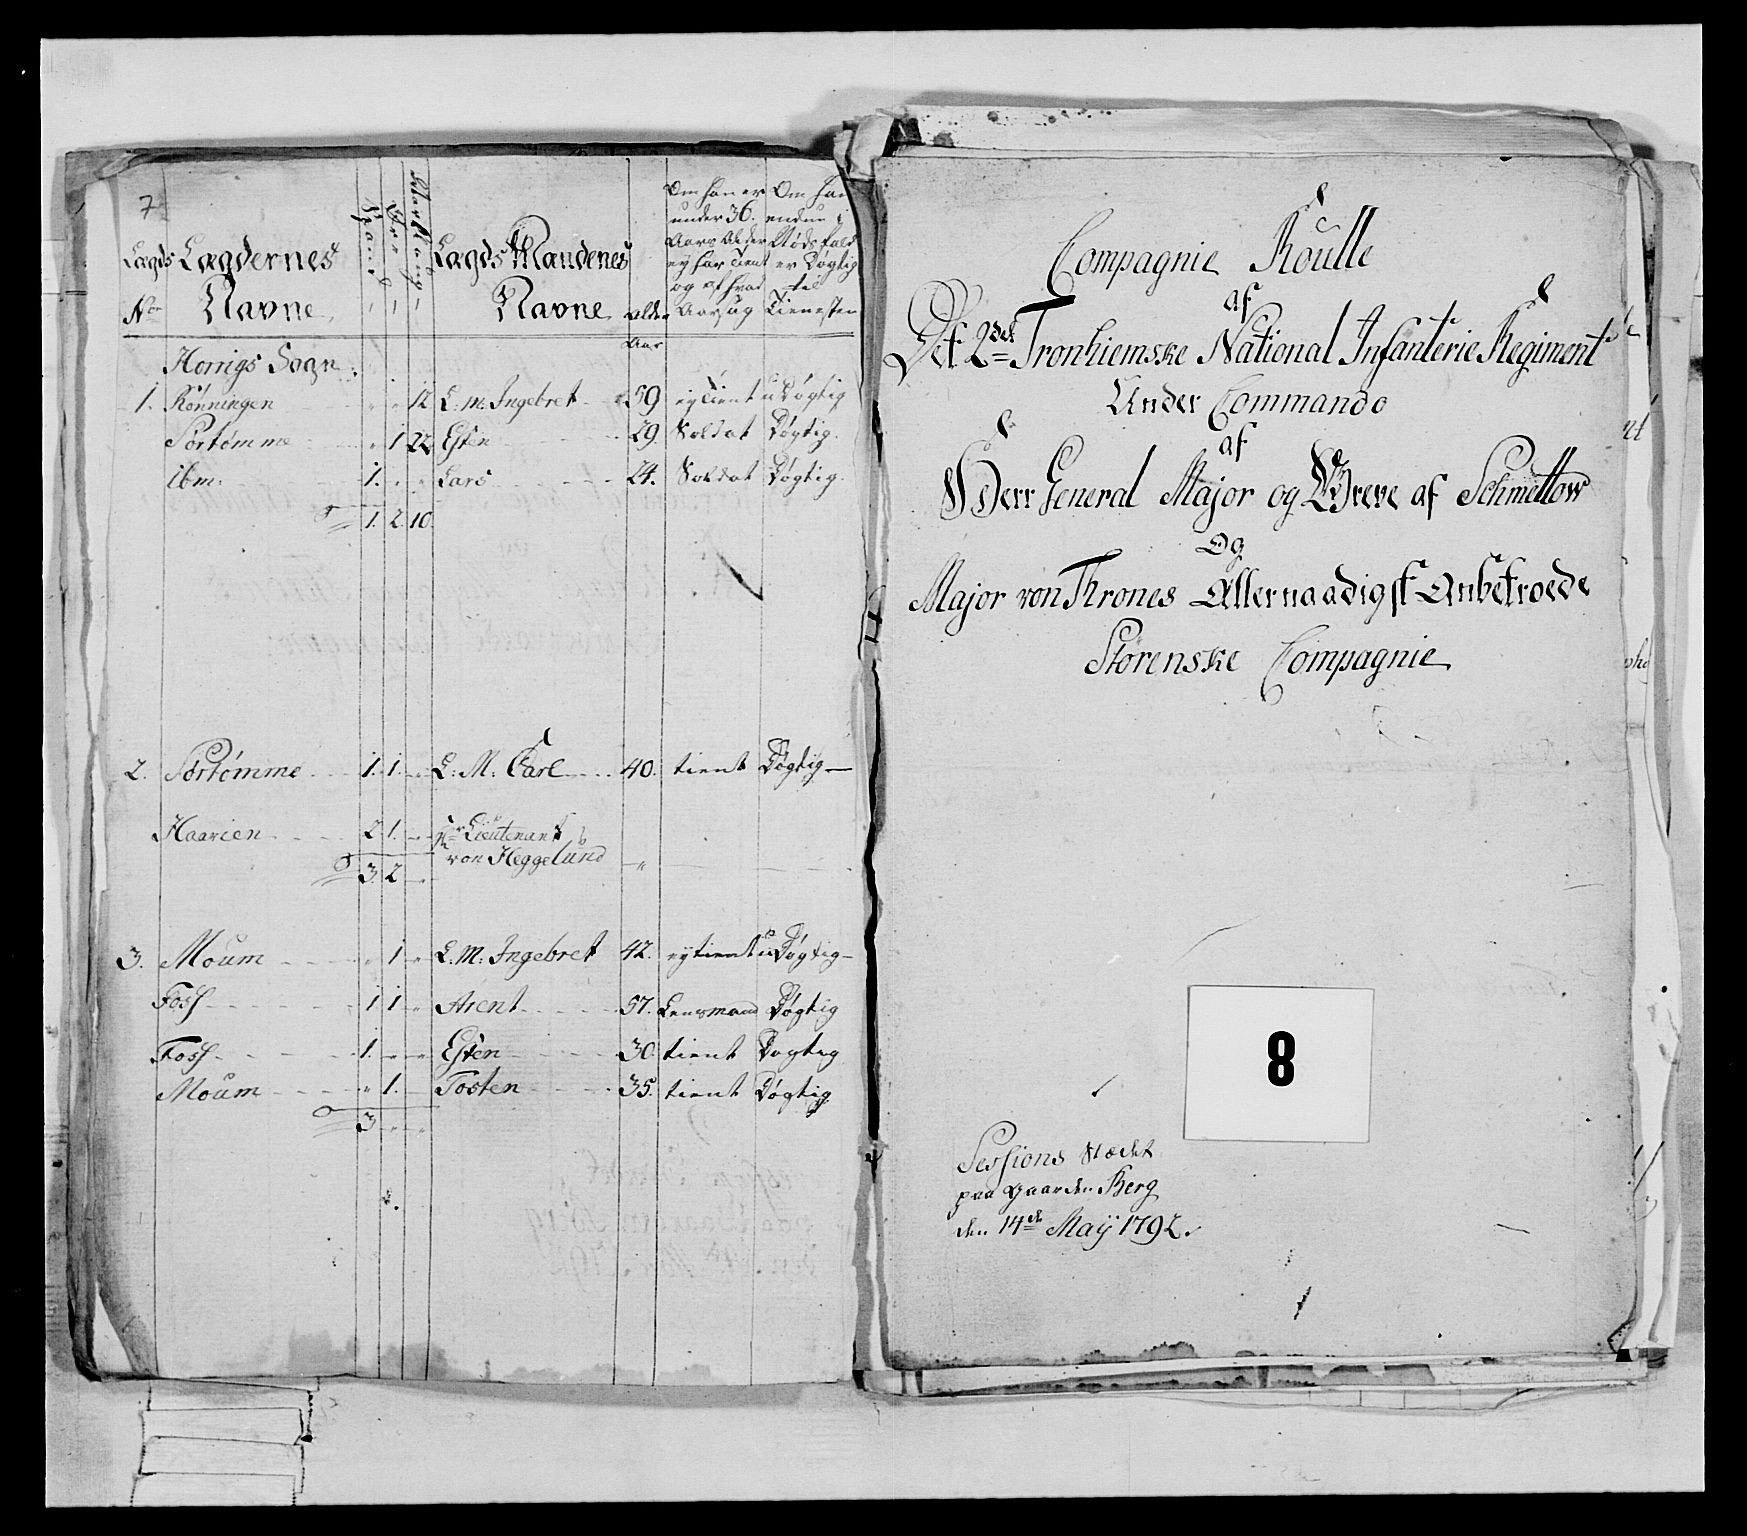 7
Lægds Lægdernes Spand Øre Marklaug Lægds Mandenes Om han er Om han
under 36. endnu i
Aars Alder Nøds fald
ey har tient er Døgtig
og af hvad til
No Navne Navne alder Aarsug Tienesten
Aar
Horrigs Sogn
1. Rønningen " " 12 L: m: Ingebret 59 ey tient uDøgtig
Sørtømme " 1 22 Esten 29. Soldat Døgtig.
ibm: 1. " " Lars 24. Soldat Døgtig.
1. 2. 10
2. Sørtømme 1. 1. " L: M: Carl 40. tient Døgtig
Haarien 2 1. " Hr Lieutenant
von Heggelund "
3. 2
3. Moum " 1 " L: M: Ingebret 42. ey tient uDøgtig
Foss 1 1 " Arent 57. Lensmand Døgtig
Foss 1. " " Esten 30 tient Døgtig
Moum " 1. Tosten 35. tient Døgtig
3 " "
Compagnie Roulle
af
Det 2det Tronhiemske National Infanterie Regiment
Under Commando
af
Herr General Major og Greve af Schmettow
Og
Major von Krones Allernaadigst Anbetroede
Størenske Compagnie
8
Sessions Stædet
paa Gaarden Berg
den 14de Maÿ 1792.